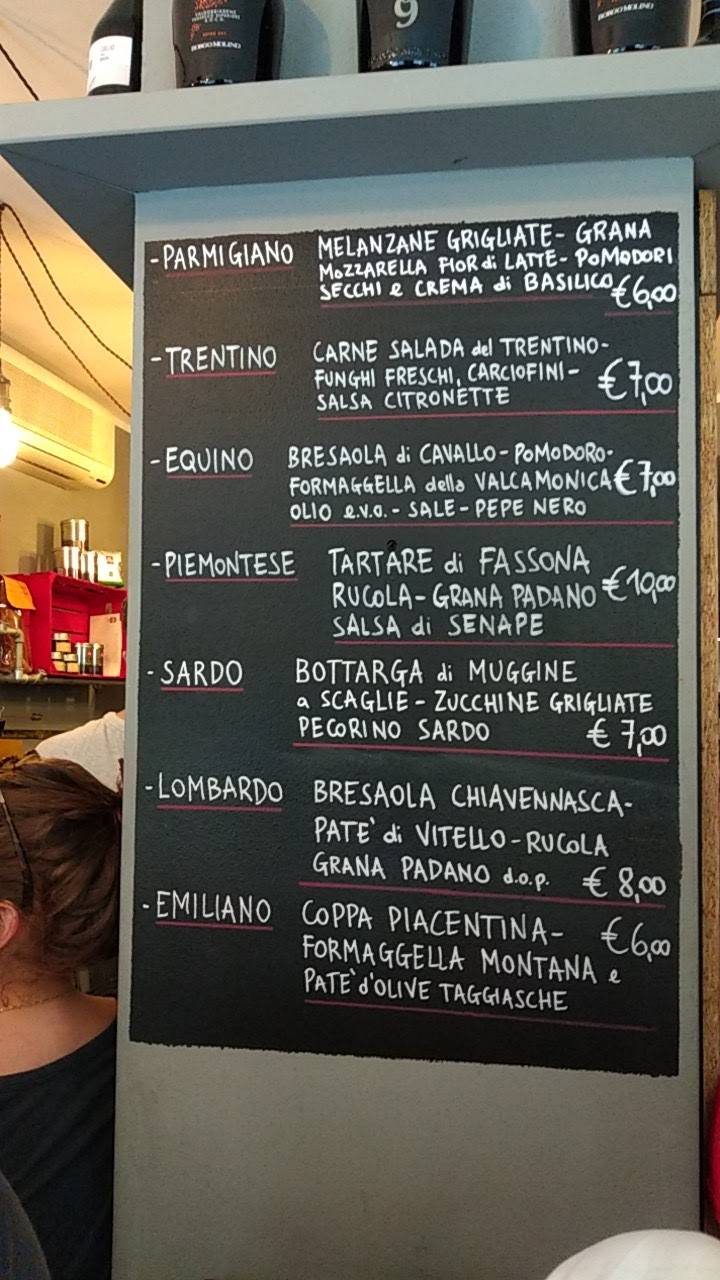 9
BORGO MOLINO
BORGO MOLINO
- PARMIGIANO MELANZANE GRIGLIATE - GRANA
MOZZARELLA FIOR di LATTE - POMODORI
SECCHI e CREMA di BASILICO €6,00
- TRENTINO CARNE SALADA del TRENTINO -
FUNGHI FRESCHI, CARCIOFINI - €7,00
SALSA CITRONETTE
- EQUINO BRESAOLA di CAVALLO - POMODORO -
FORMAGGELLA della VALCAMONICA €7,00
OLIO e.v.o. - SALE - PEPE NERO
- PIEMONTESE TARTARE di FASSONA
RUCOLA - GRANA PADANO €10,00
SALSA di SENAPE
- SARDO BOTTARGA di MUGGINE
a SCAGLIE - ZUCCHINE GRIGLIATE
PECORINO SARDO € 7,00
- LOMBARDO BRESAOLA CHIAVENNASCA -
PATE' di VITELLO - RUCOLA
GRANA PADANO d.o.p. € 8,00
- EMILIANO COPPA PIACENTINA - €6,00
FORMAGGELLA MONTANA e
PATE' d'OLIVE TAGGIASCHE